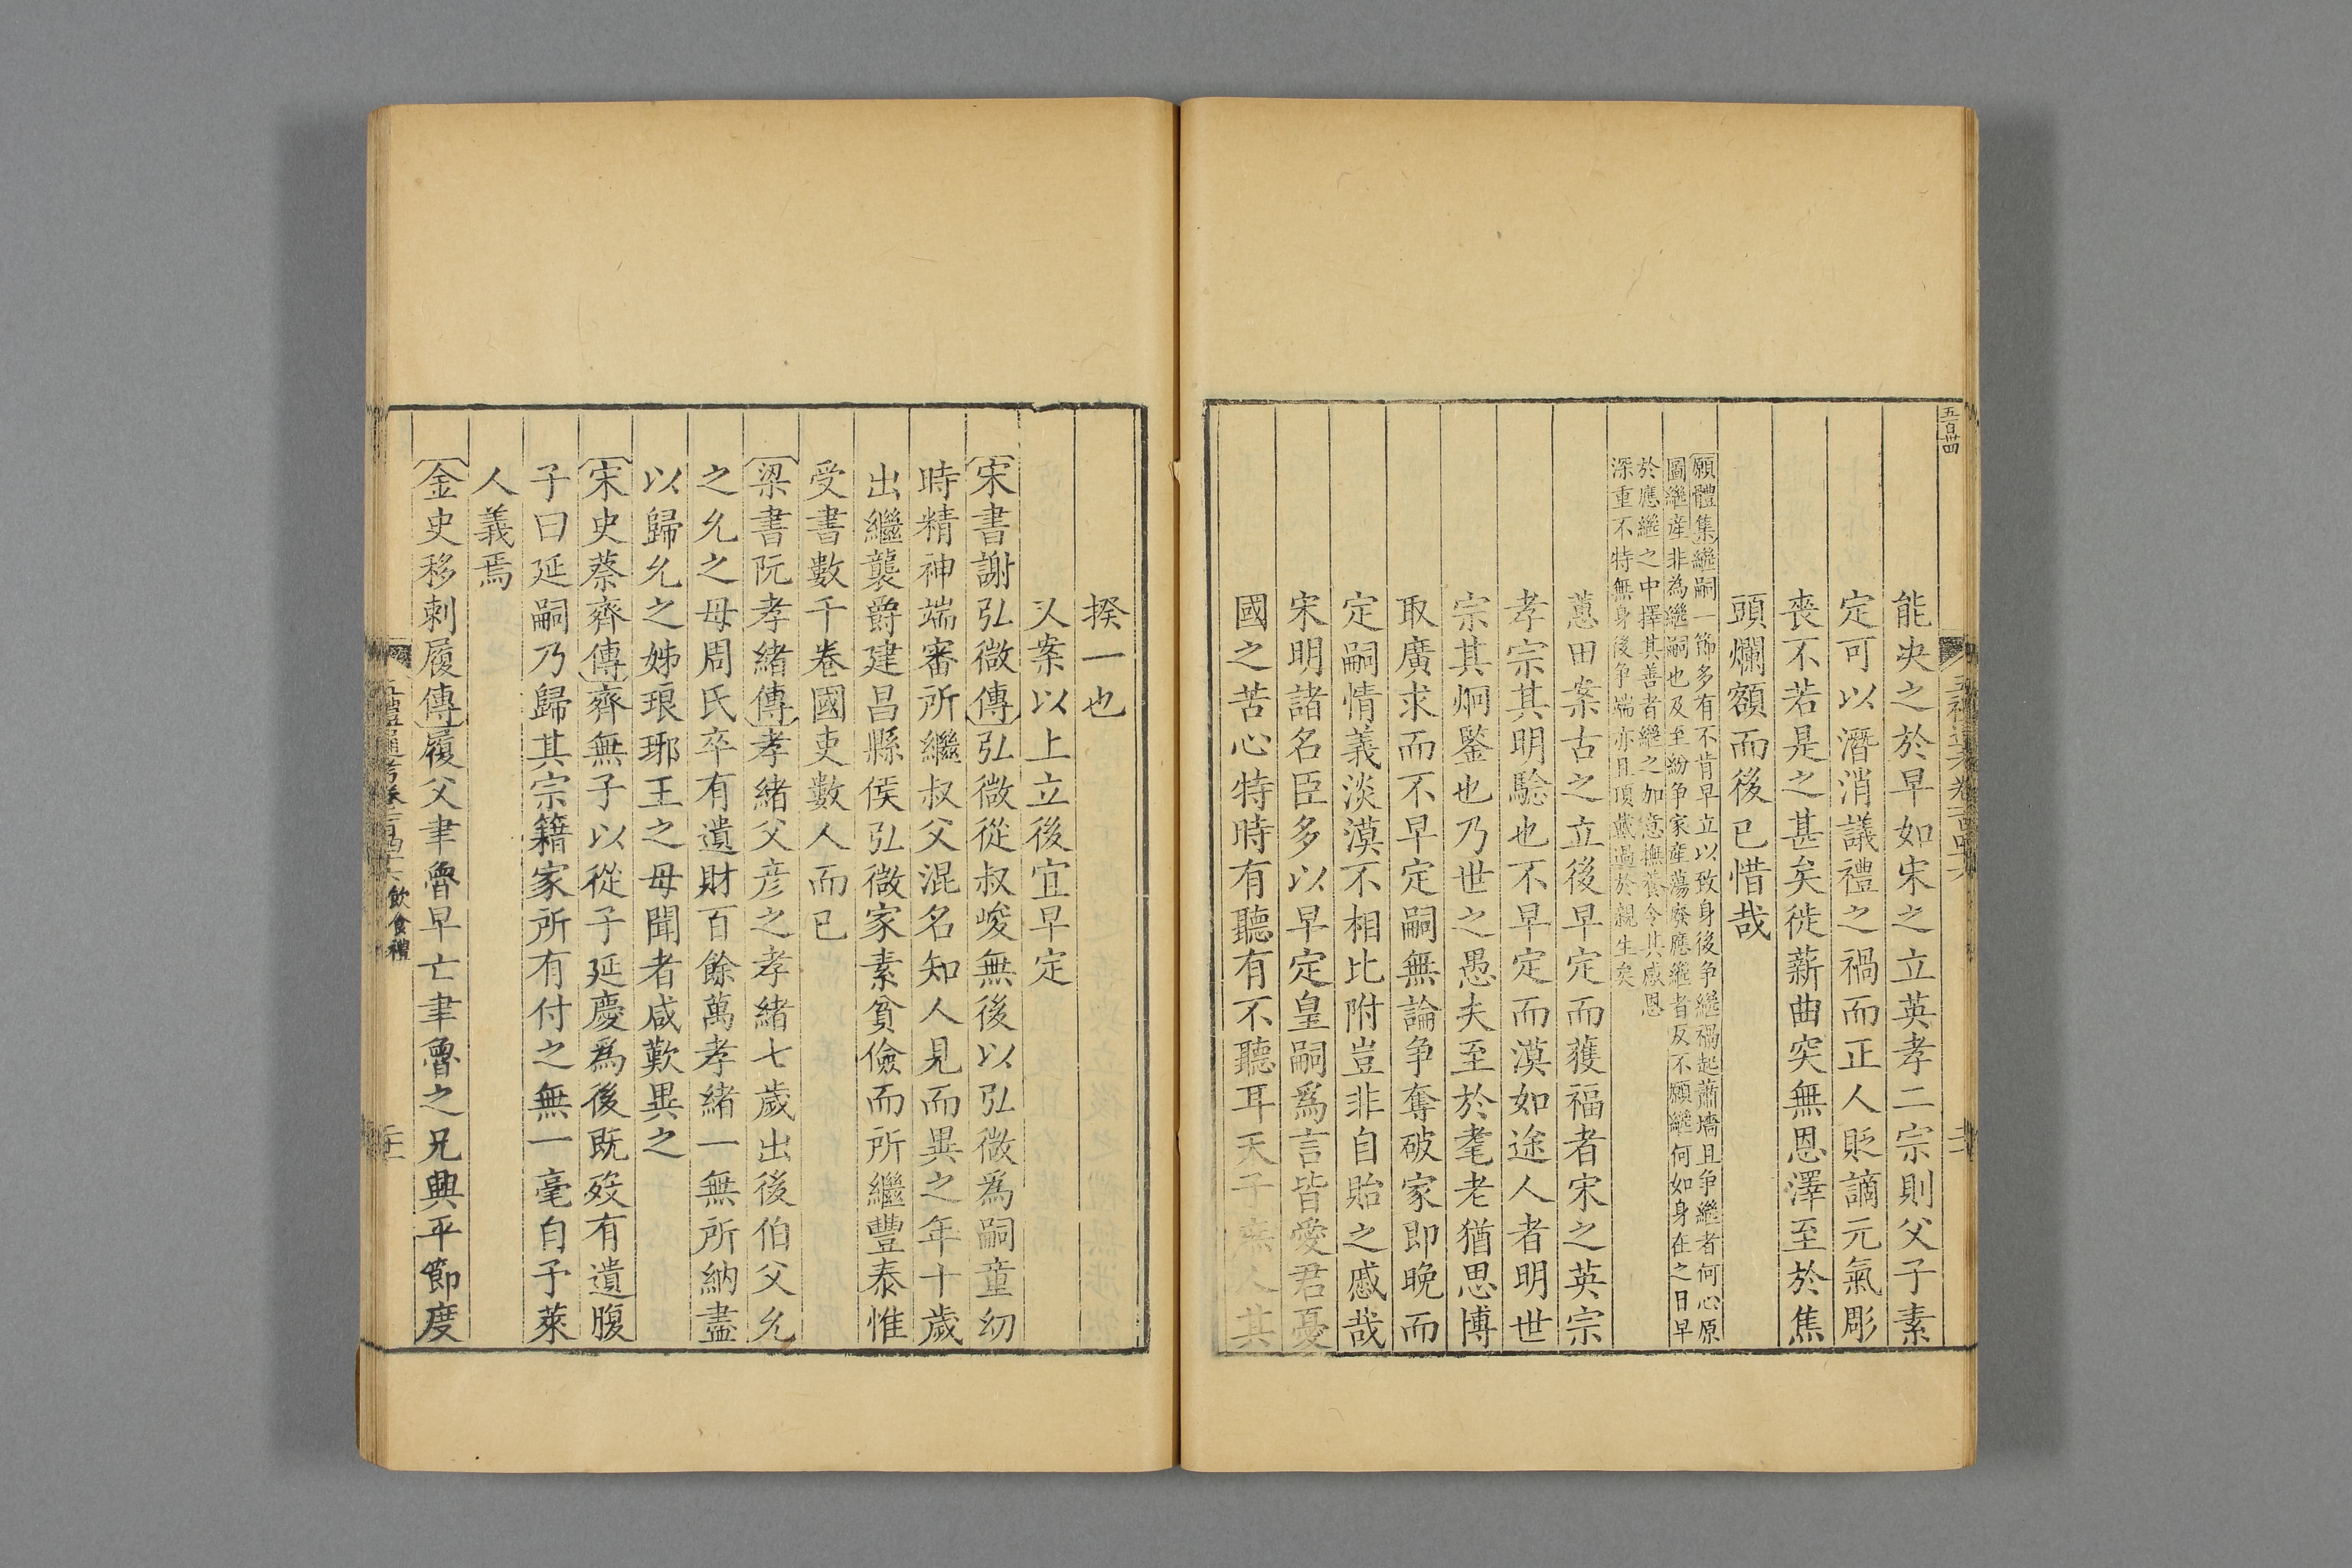 五百卌四
能決之於早如宋之立英孝二宗則父子素
定可以潛消議禮之禍而正人貶謫元氣彫
喪不若是之甚矣徙薪曲突無恩澤至於焦
頭爛額而後已惜哉
願體集繼嗣一節多有不肯早立以致身後争繼禍起蕭墻且争繼者何心原
圖繼産非為繼嗣也及至紛争家産蕩廢應繼者反不願繼何如身在之日早
於應繼之中擇其善者繼之加意撫養令其感恩
深重不特無身後争端亦且頂戴過於親生矣
蕙田案古之立後早定而獲福者宋之英宗
孝宗其明驗也不早定而漠如途人者明世
宗其炯鑒也乃世之愚夫至於耄老猶思博
取廣求而不早定嗣無論争奪破家即晚而
定嗣情義淡漠不相比附豈非自貽之慼哉
宋明諸名臣多以早定皇嗣爲言皆愛君憂
國之苦心特時有聽有不聽耳天子庶人其
揆一也
乂案以上立後宜早定
宋書謝弘微傳弘微從叔峻無後以弘微爲嗣童幼
時精神端審所繼叔父混名知人見而異之年十歲
出繼襲爵建昌縣侯弘微家素貧儉而所繼豐泰惟
受書數千卷國吏數人而已
梁書阮孝緒傳孝緒父彦之孝緒七歲出後伯父允
之允之母周氏卒有遺財百餘萬孝緒一無所納盡
以歸允之姊琅琊王之母聞者咸歎異之
宋史蔡齊傳齊無子以從子延慶爲後既歿有遺腹
子曰延嗣乃歸其宗籍家所有付之無一毫自予萊
人義焉
金史移剌履傳履父聿魯早亡聿魯之兄興平節度
五禮通考卷一百四十六 飲食禮